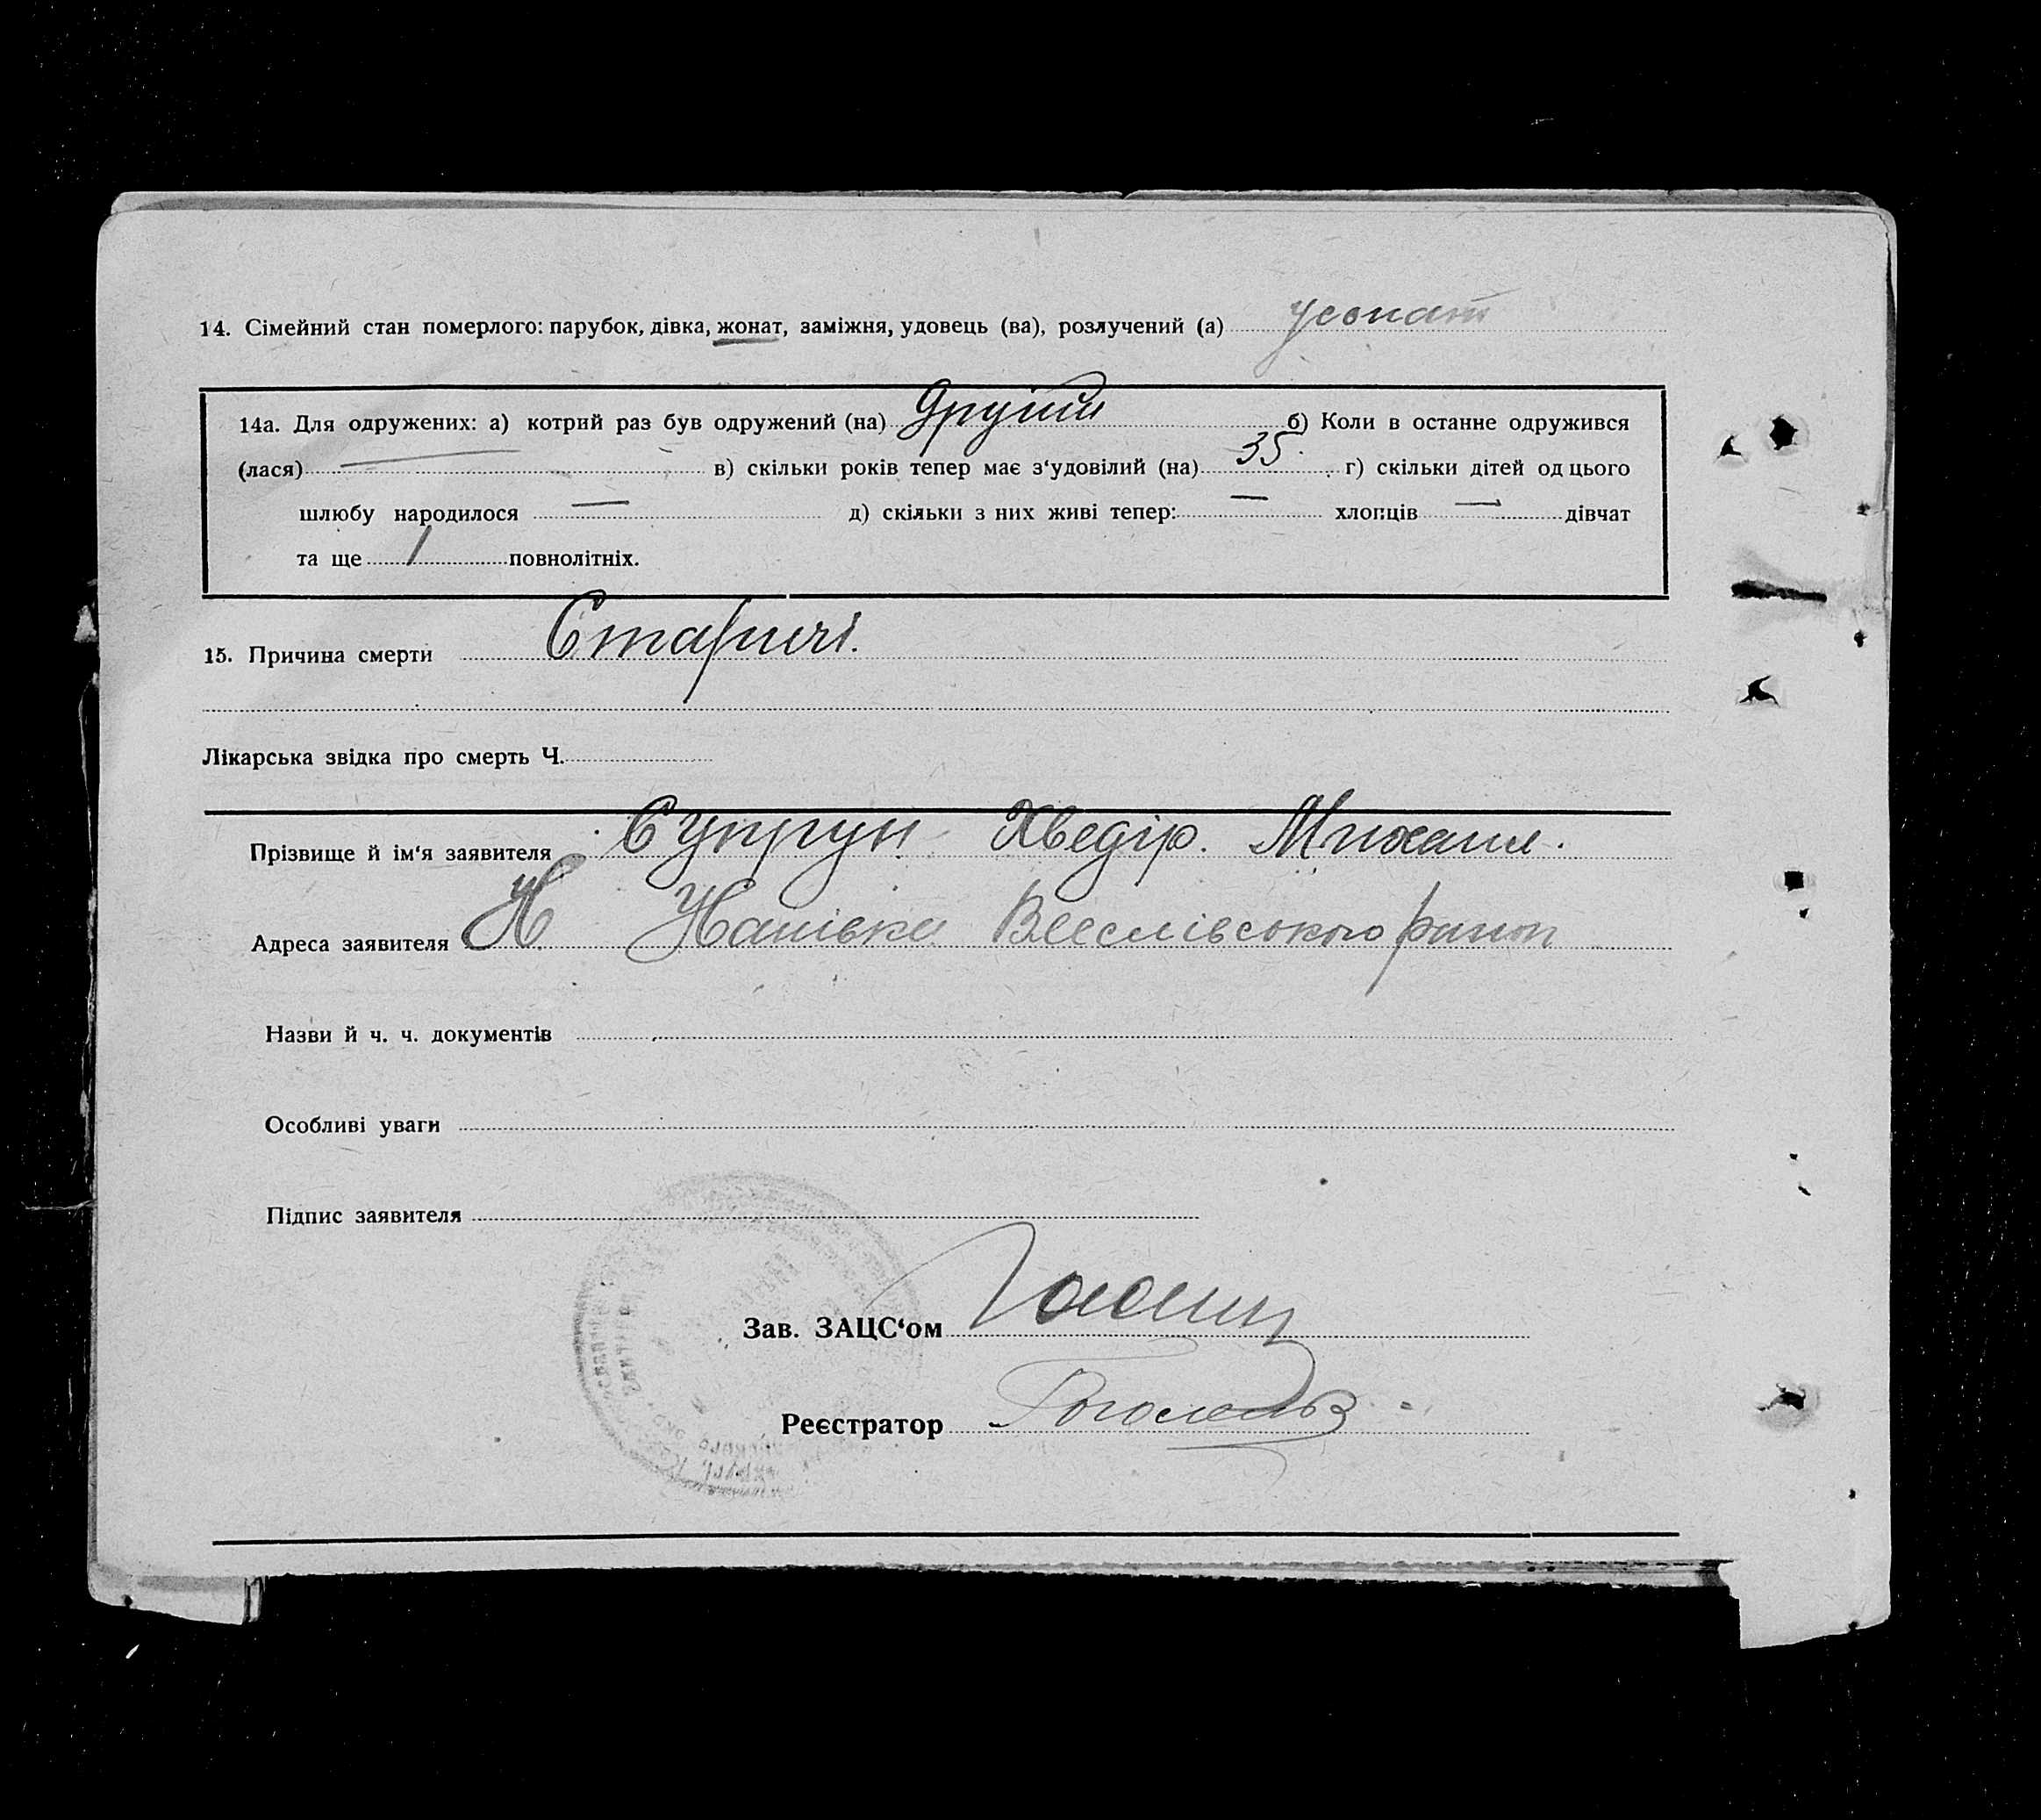 14. Сімейний стан померлого: парубок, дівка, жонат, заміжня, удовець (ва), розлучений (а) жонат
14а. Для одружених: а) котрий раз був одружений (на) другий б) Коли в останнє одружився
(лася) — в) скільки років тепер має з‘удовілий (на) 35. г) скільки дітей од цього
шлюбу народилося — д) скільки з них живі тепер: — хлопців — дівчат
та ще 1 повнолітніх.
15. Причина смерти Старичі.
Лікарська звідка про смерть Ч.
Прізвище й ім‘я заявителя Супрун Хведір. Михаил.
Адреса заявителя Н Канівка району
Назви й ч. ч. документів
Особливі уваги
Підпис заявителя
Зав. ЗАЦС‘ом
Реєстратор